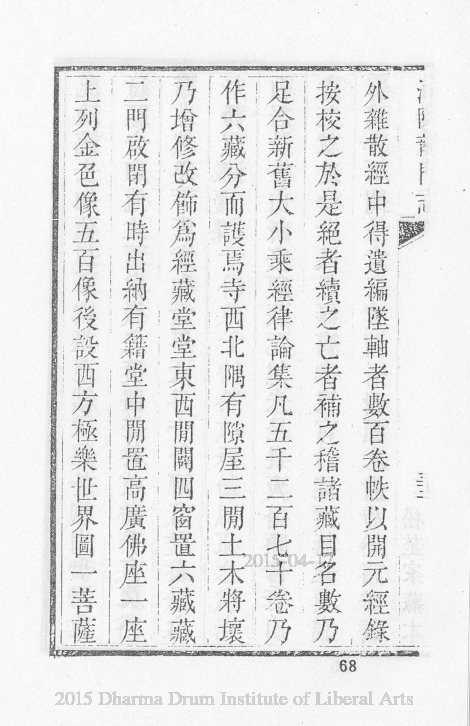 外雜散經中得遺編墜軸者數百卷帙以開元經錄
按校之於是絕者續之亡者補之稽諸藏目名數乃
足合新舊大小乘經律論集凡五千二百七十卷乃
作六藏分而護焉寺西北隅有隙屋三閒土木將壞
乃增修改飾爲經藏堂堂東西閒闢四窗置六藏藏
二門啟閉有時出納有籍堂中閒置高廣佛座一座
上列金色像五百像後設西方極樂世界圖一菩薩
2015-04-17
68
2015 Dharma Drum Institute of Liberal Arts